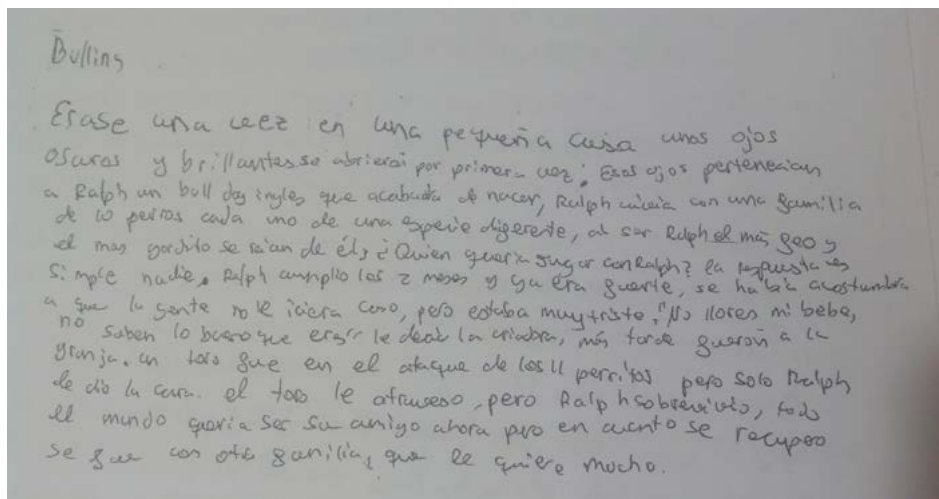 Bulling
Erase una vez en una pequeña casa unos ojos
oscuros y brillantes se abrieron por primera vez; Esos ojos pertenecian
a Ralph un bull dog ingles que acababa de nacer, Ralph vivia con una familia
de 10 perros cada uno de una especie diferente, al ser Ralph el más feo y
el mas gordito se reian de él, ¿Quien queria jugar con Ralph? la respuesta es
simple nadie. Ralph cumplio los 2 meses y ya era fuerte, se habia acostumbrado
a que la gente no le iciera caso, pero estaba muy triste, "No llores mi bebe,
no saben lo bueno que eres" le decia la criadora, más tarde fueron a la
granja. un toro fue en el ataque de los 11 perritos pero solo Ralph
le dio la cara. el toro le atraveso, pero Ralph sobrevivio, todo
el mundo queria ser su amigo ahora pero en cuanto se recupero
se fue con otra familia, que le quiere mucho.